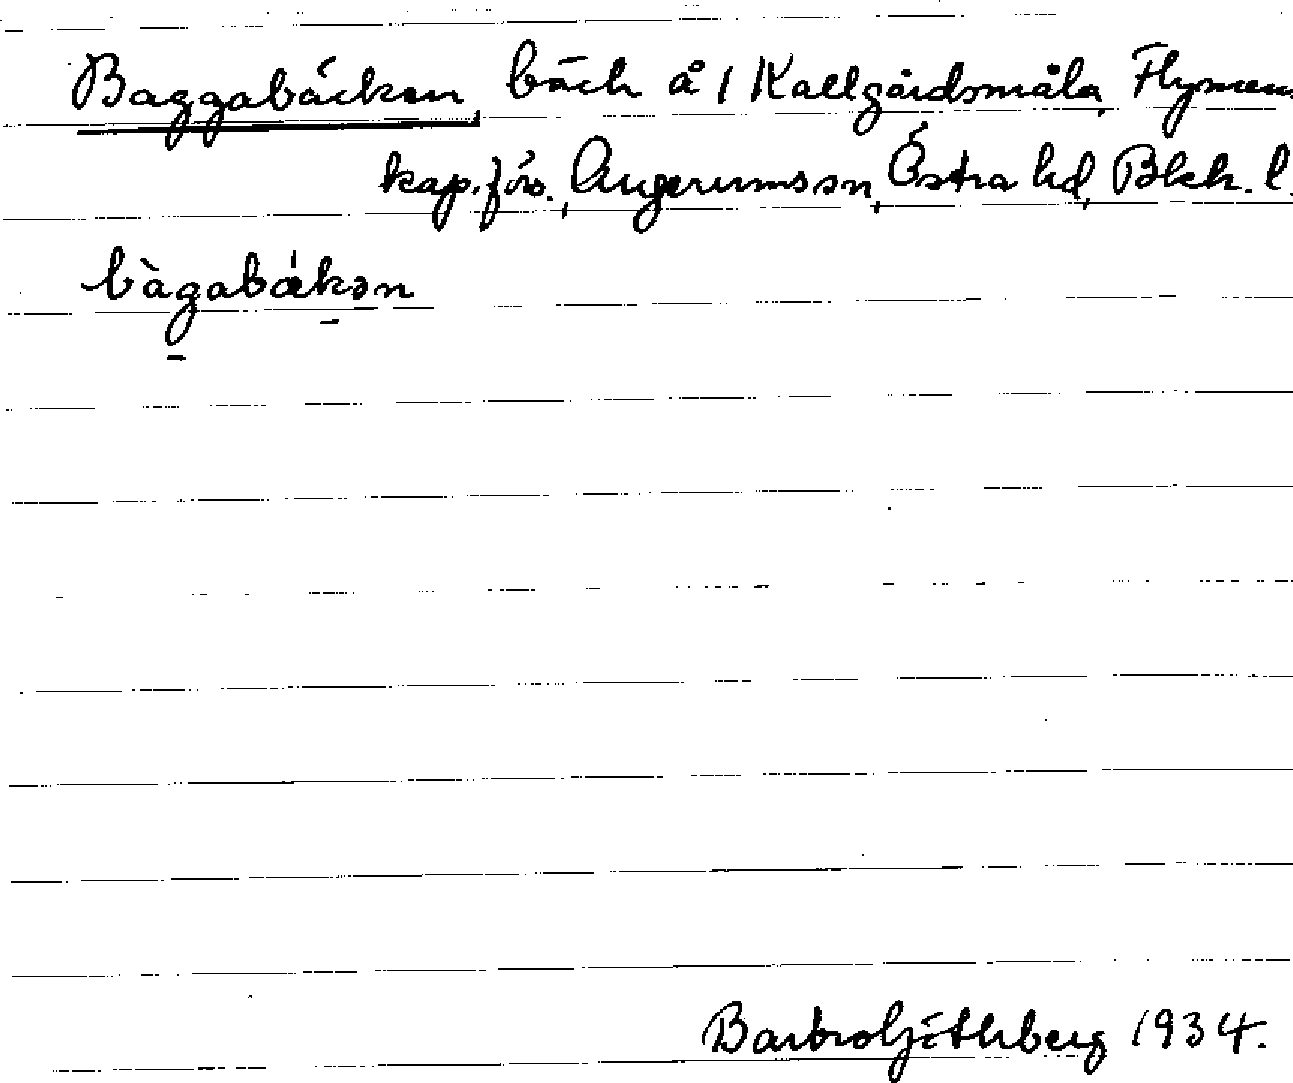 Baggabäcken, bäck å 1 Kallgårdsmåla, Flymens
kap.förs., Augerums sn, Östra hd, Blek. l.
bàgabǽkən
Barbro 1934.